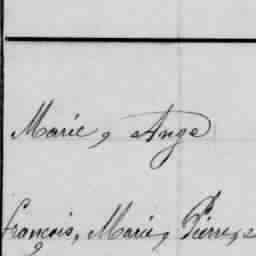 Marie, Ange
françois, Marie, Pierre,